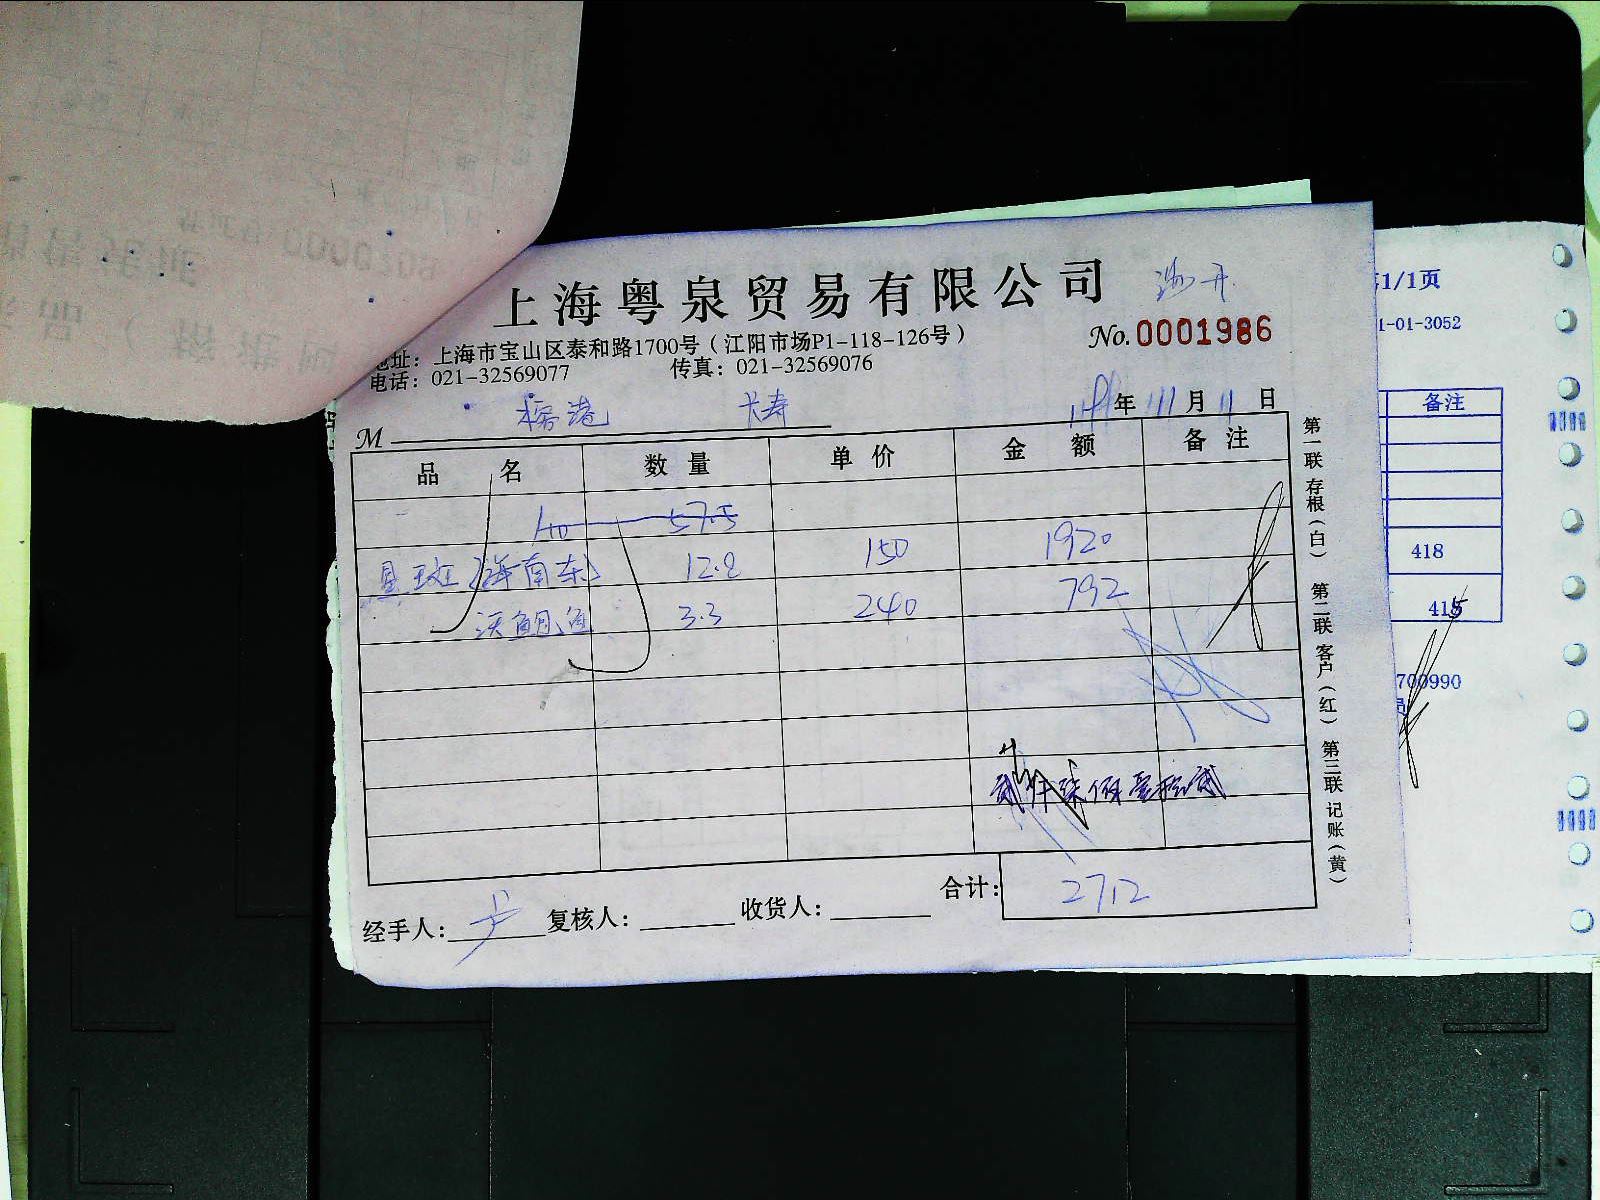 上海粤泉贸易有限公司
No. 0001986
地址：上海市宝山区泰和路1700号（江阳市场P1-118-126号）
电话：021-32569077 传真：021-32569076
长寿
M
年 月 11 日
品名 数量 单价 金额 备注
57.5
星斑（海南东） 12.8 150 1920
3.3 240 792
贰仟柒佰壹拾贰
合计： 2712
经手人： 复核人： 收货人：
第一联 存根（白） 第二联 客户（红） 第三联 记账（黄）
1/1页
1-01-3052
备注
418
415
700990